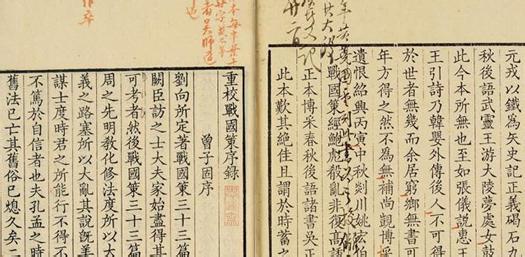 元戎以鐵為矢史記正義碣石九
秋後語武靈王游大陵夢處女鼓
此今本所無也至如張儀說惠王
王引詩乃韓嬰外傳後人不可得
於世者無幾而余居窮鄉無書可
年方得之然不為無補尚覬博采
遺恨紹興丙寅中秋剡川姚宏伯
戰國策經鮑彪殽亂非復高誘
正本博采春秋後語諸書吳正
此本歎其絕佳且謂於時蓄之
重校戰國策序錄
曾子固序
劉向所定著戰國策三十三篇
闕臣訪之士大夫家始盡得其
可考者然後戰國策三十三篇
周之先明教化修法度所以大
義之路塞所以大亂其說既美
謀士度時君之所能行不得不
不篤於自信者也夫孔孟之時
舊法已亡其舊俗已熄久矣二